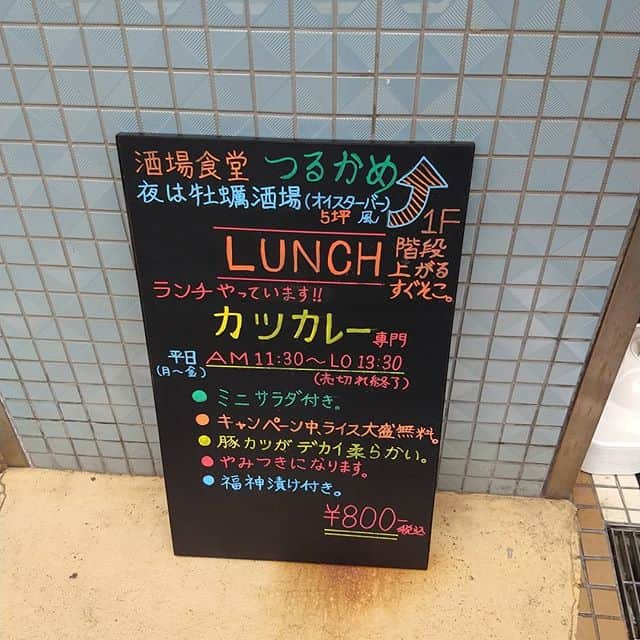 酒場食堂 つるかめ
夜は牡蠣酒場(オイスターバー)
5坪 風
1F
階段
上がる
すぐそこ。
LUNCH
ランチやっています!!
カツカレー専門
平日
(月～金)
AM 11:30～LO 13:30
(売切れ終了)
ミニサラダ付き。
キャンペーン中、ライス大盛無料。
豚カツがデカイ柔らかい。
やみつきになります。
福神漬け付き。
¥800-税込